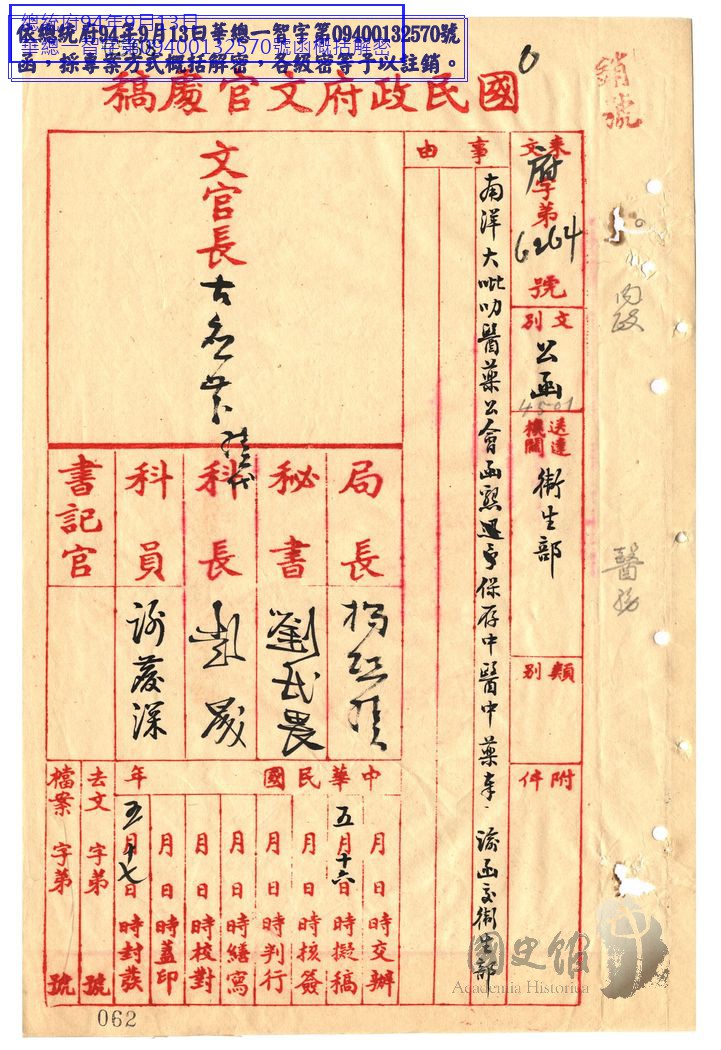 總統府94年9月13日
華總一智字第09400132570號函概括解密
依總統府94年9月13日華總一智字第09400132570號
函，採專案方式概括解密，各級密等予以註銷。
銷號
國民政府文官處稿
來文
府字第6264號
文別
公函
4501
送達機關
衛生部
類別
附件
內政
醫務
事由
南洋大吡叻醫藥公會函懇迅予保存中醫中藥奉諭函交衛生部
文官長
古應芬
局長
秘書
劉民畏
科長
科員
書記官
中華民國 年
月 日 時交辦
五月十六日 時擬稿
月 日 時核簽
月 日 時判行
月 日 時繕寫
月 日 時校對
月 日 時蓋印
五月十七日 時封發
去文 字第 號
檔案 字第 號
國史館
Academia Historica
062